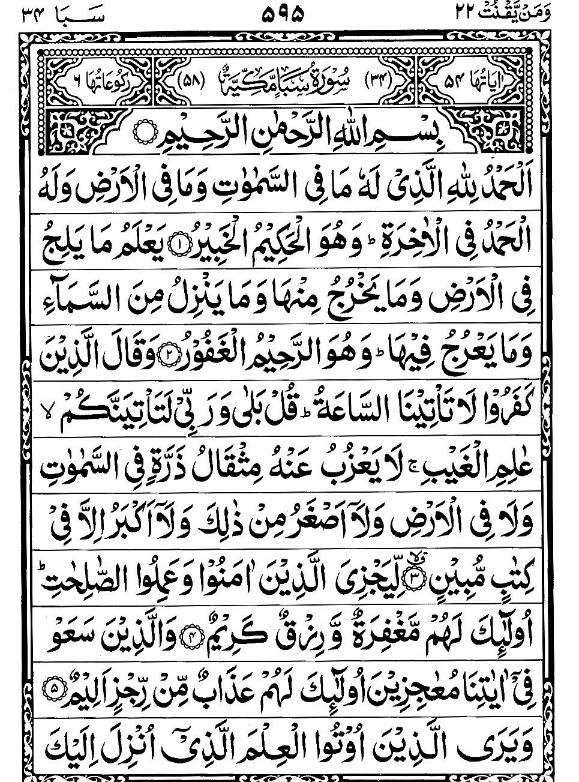 وَمَنْ يَّقْنُتْ ٢٢ ٥٩٥ سَبَا ٣٤
اٰيَاتُهَا ٥٤ (٣٤) سُوْرَةُ سَبَاٍ مَّكِّيَّةٌ (٥٨) رُكُوْعَاتُهَا ٦
بِسْمِ اللّٰهِ الرَّحْمٰنِ الرَّحِيْمِ
اَلْحَمْدُ لِلّٰهِ الَّذِىْ لَهٗ مَا فِى السَّمٰوٰتِ وَمَا فِى الْاَرْضِ وَلَهُ
الْحَمْدُ فِى الْاٰخِرَةِ ؕ وَهُوَ الْحَكِيْمُ الْخَبِيْرُ ۝١ يَعْلَمُ مَا يَلِجُ
فِى الْاَرْضِ وَمَا يَخْرُجُ مِنْهَا وَمَا يَنْزِلُ مِنَ السَّمَآءِ
وَمَا يَعْرُجُ فِيْهَا ؕ وَهُوَ الرَّحِيْمُ الْغَفُوْرُ ۝٢ وَقَالَ الَّذِيْنَ
كَفَرُوْا لَا تَاْتِيْنَا السَّاعَةُ ؕ قُلْ بَلٰى وَرَبِّىْ لَتَاْتِيَنَّكُمْ ۙ
عٰلِمِ الْغَيْبِ ۚ لَا يَعْزُبُ عَنْهُ مِثْقَالُ ذَرَّةٍ فِى السَّمٰوٰتِ
وَلَا فِى الْاَرْضِ وَلَاۤ اَصْغَرُ مِنْ ذٰلِكَ وَلَاۤ اَكْبَرُ اِلَّا فِىْ
كِتٰبٍ مُّبِيْنٍ ۝٣ لِّيَجْزِىَ الَّذِيْنَ اٰمَنُوْا وَعَمِلُوا الصّٰلِحٰتِ ؕ
اُولٰٓئِكَ لَهُمْ مَّغْفِرَةٌ وَّرِزْقٌ كَرِيْمٌ ۝٤ وَالَّذِيْنَ سَعَوْ
فِىْۤ اٰيٰتِنَا مُعٰجِزِيْنَ اُولٰٓئِكَ لَهُمْ عَذَابٌ مِّنْ رِّجْزٍ اَلِيْمٌ ۝٥
وَيَرَى الَّذِيْنَ اُوْتُوا الْعِلْمَ الَّذِىْۤ اُنْزِلَ اِلَيْكَ